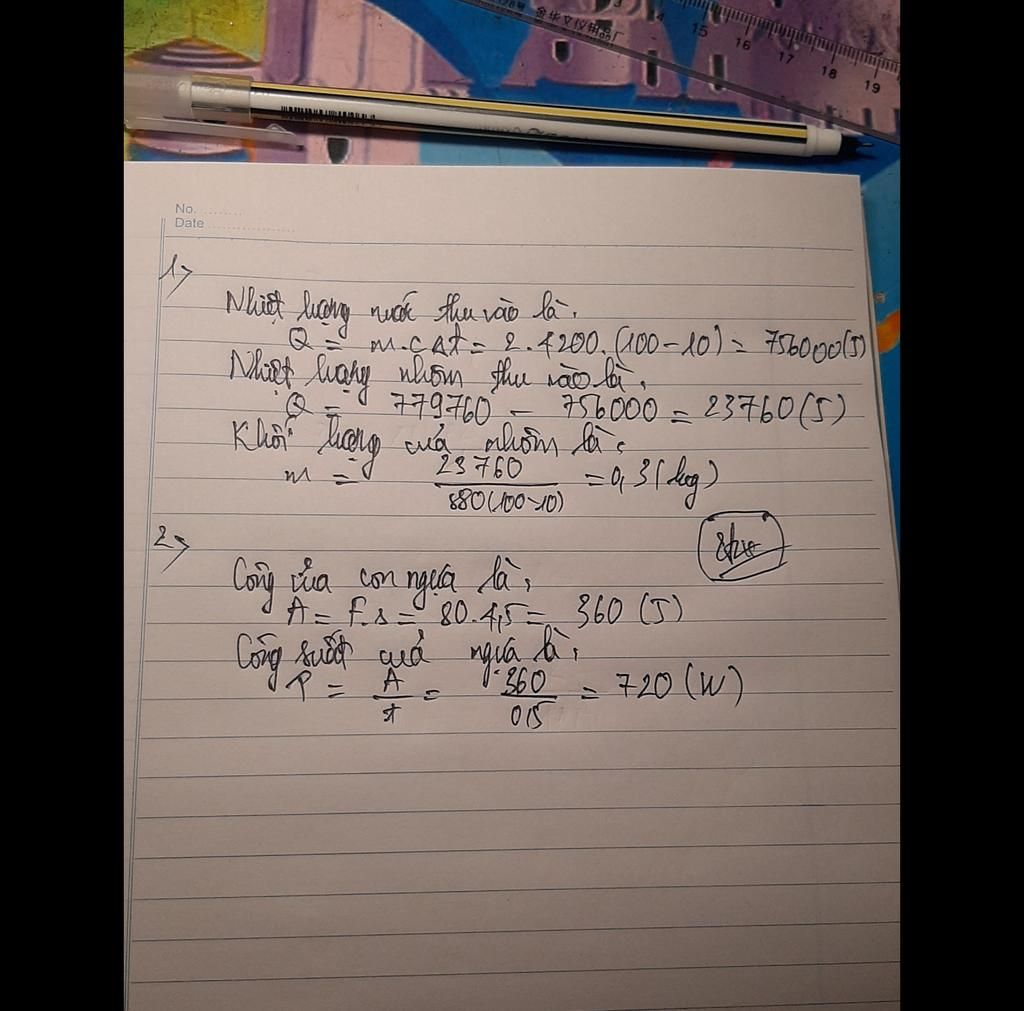 金华文仪钢品厂
3 4 15 16 17 18 19
No.
Date
1>
Nhiệt lượng nước thu vào là:
Q = m.c.Δt = 2.4200.(100-10) = 756000(J)
Nhiệt lượng nhôm thu vào là:
Q = 779760 - 756000 = 23760(J)
Khối lượng của nhôm là:
m = 23760 / 880(100-10) = 0,3(kg)
2>
Công của con ngựa là:
A = F.s = 80.4,5 = 360 (J)
Công suất của ngựa là:
P = A / t = 360 / 0,5 = 720 (W)